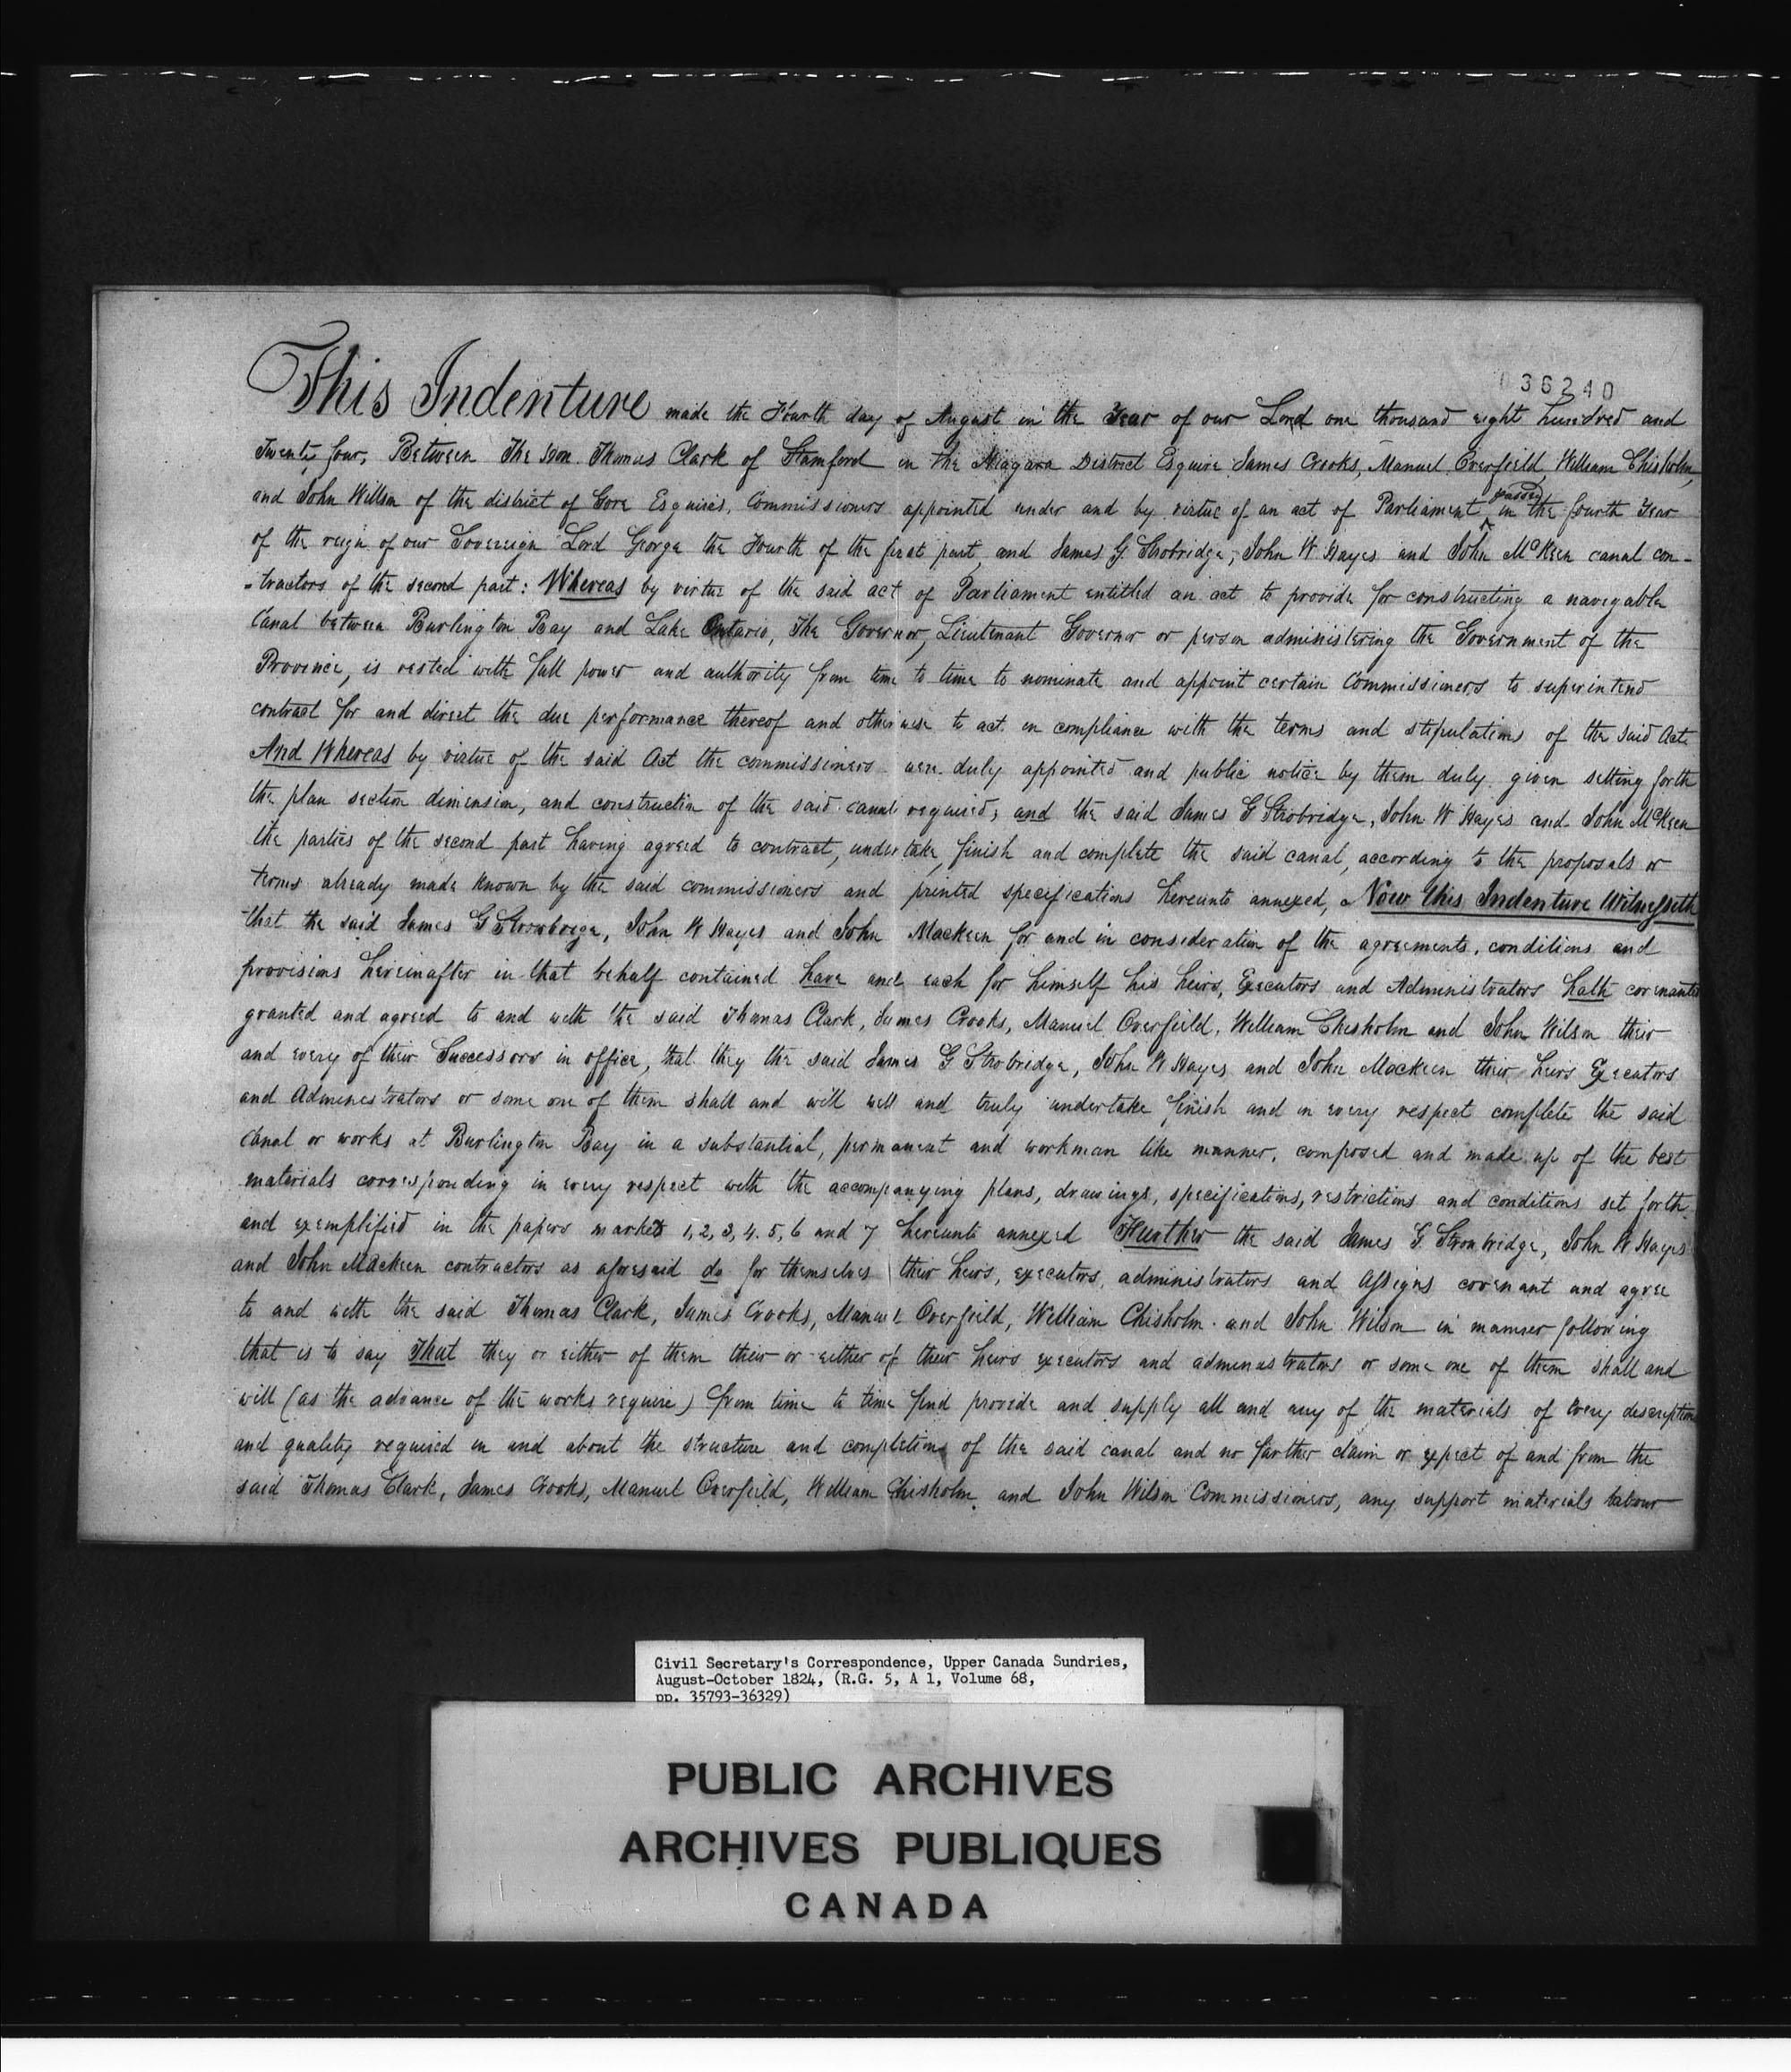 036240
This Indenture made the Fourth day of August in the Year of our Lord one thousand eight hundred and
Twenty four, Between The Hon. Thomas Clark of Stamford in the Niagara District Esquire James Crooks, Manuel Overfield, William Chisholm,
and John Willson of the district of Gore Esquires, Commissioners appointed under and by virtue of an act of Parliament passed in the fourth Year
of the reign of our Sovereign Lord George the Fourth of the first part, and James G. Strobridge, John W Hayes and John McKeen canal con-
-tractors of the second part: Whereas by virtue of the said act of Parliament entitled an act to provide for constructing a navigable
Canal between Burlington Bay and Lake Ontario, The Governor, Lieutenant Governor or person administering the Government of the
Province, is vested with full power and authority from time to time to nominate and appoint certain Commissioners to superintend
contract for and direct the due performance thereof and otherwise to act in compliance with the terms and stipulations of the said Act.
And Whereas by virtue of the said Act the commissioners were duly appointed and public notice by them duly given setting forth
the plan section dimension, and construction of the said canal required, and the said James G Strobridge, John W Hayes and John McKeen
the parties of the second part having agreed to contract, undertake, finish and complete the said canal, according to the proposals or
terms already made known by the said commissioners and printed specifications hereunto annexed, Now this Indenture Witnesseth
that the said James G Strowbridge, John W Hayes and John Mackeen for and in consideration of the agreements, conditions and
provisions hereinafter in that behalf contained have and each for himself his heirs, Executors and Administrators hath covenanted
granted and agreed to and with the said Thomas Clark, James Crooks, Manuel Overfield, William Chisholm and John Wilson their
and every of their Successors in office, that they the said James G Strobridge, John W Hayes and John Mackeen their heirs Executors
and Administrators or some one of them shall and will well and truly undertake finish and in every respect complete the said
Canal or works at Burlington Bay in a substantial, permanent and workman like manner, composed and made up of the best
materials corresponding in every respect with the accompanying plans, drawings, specifications, restrictions and conditions set forth
and exemplified in the papers marked 1, 2, 3, 4. 5, 6 and 7 hereunto annexed Further the said James G. Strowbridge, John W Hayes
and John Mackeen contractors as aforesaid do for themselves their heirs, executors, administrators and Assigns covenant and agree
to and with the said Thomas Clark, James Crooks, Manuel Overfeild, William Chisholm and John Wilson in manner following
that is to say That they or either of them their or either of their heirs executors and administrators or some one of them shall and
will (as the advance of the works require) from time to time find provide and supply all and any of the materials of every description
and quality required in and about the structure and completion of the said canal and no farther claim or expect of and from the
said Thomas Clark, James Crooks, Manuel Overfeild, William Chisholm, and John Wilson Commissioners, any support materials labour
Civil Secretary's Correspondence, Upper Canada Sundries,
August-October 1824, (R.G. 5, A 1, Volume 68,
pp. 35793-36329)
PUBLIC ARCHIVES
ARCHIVES PUBLIQUES
CANADA